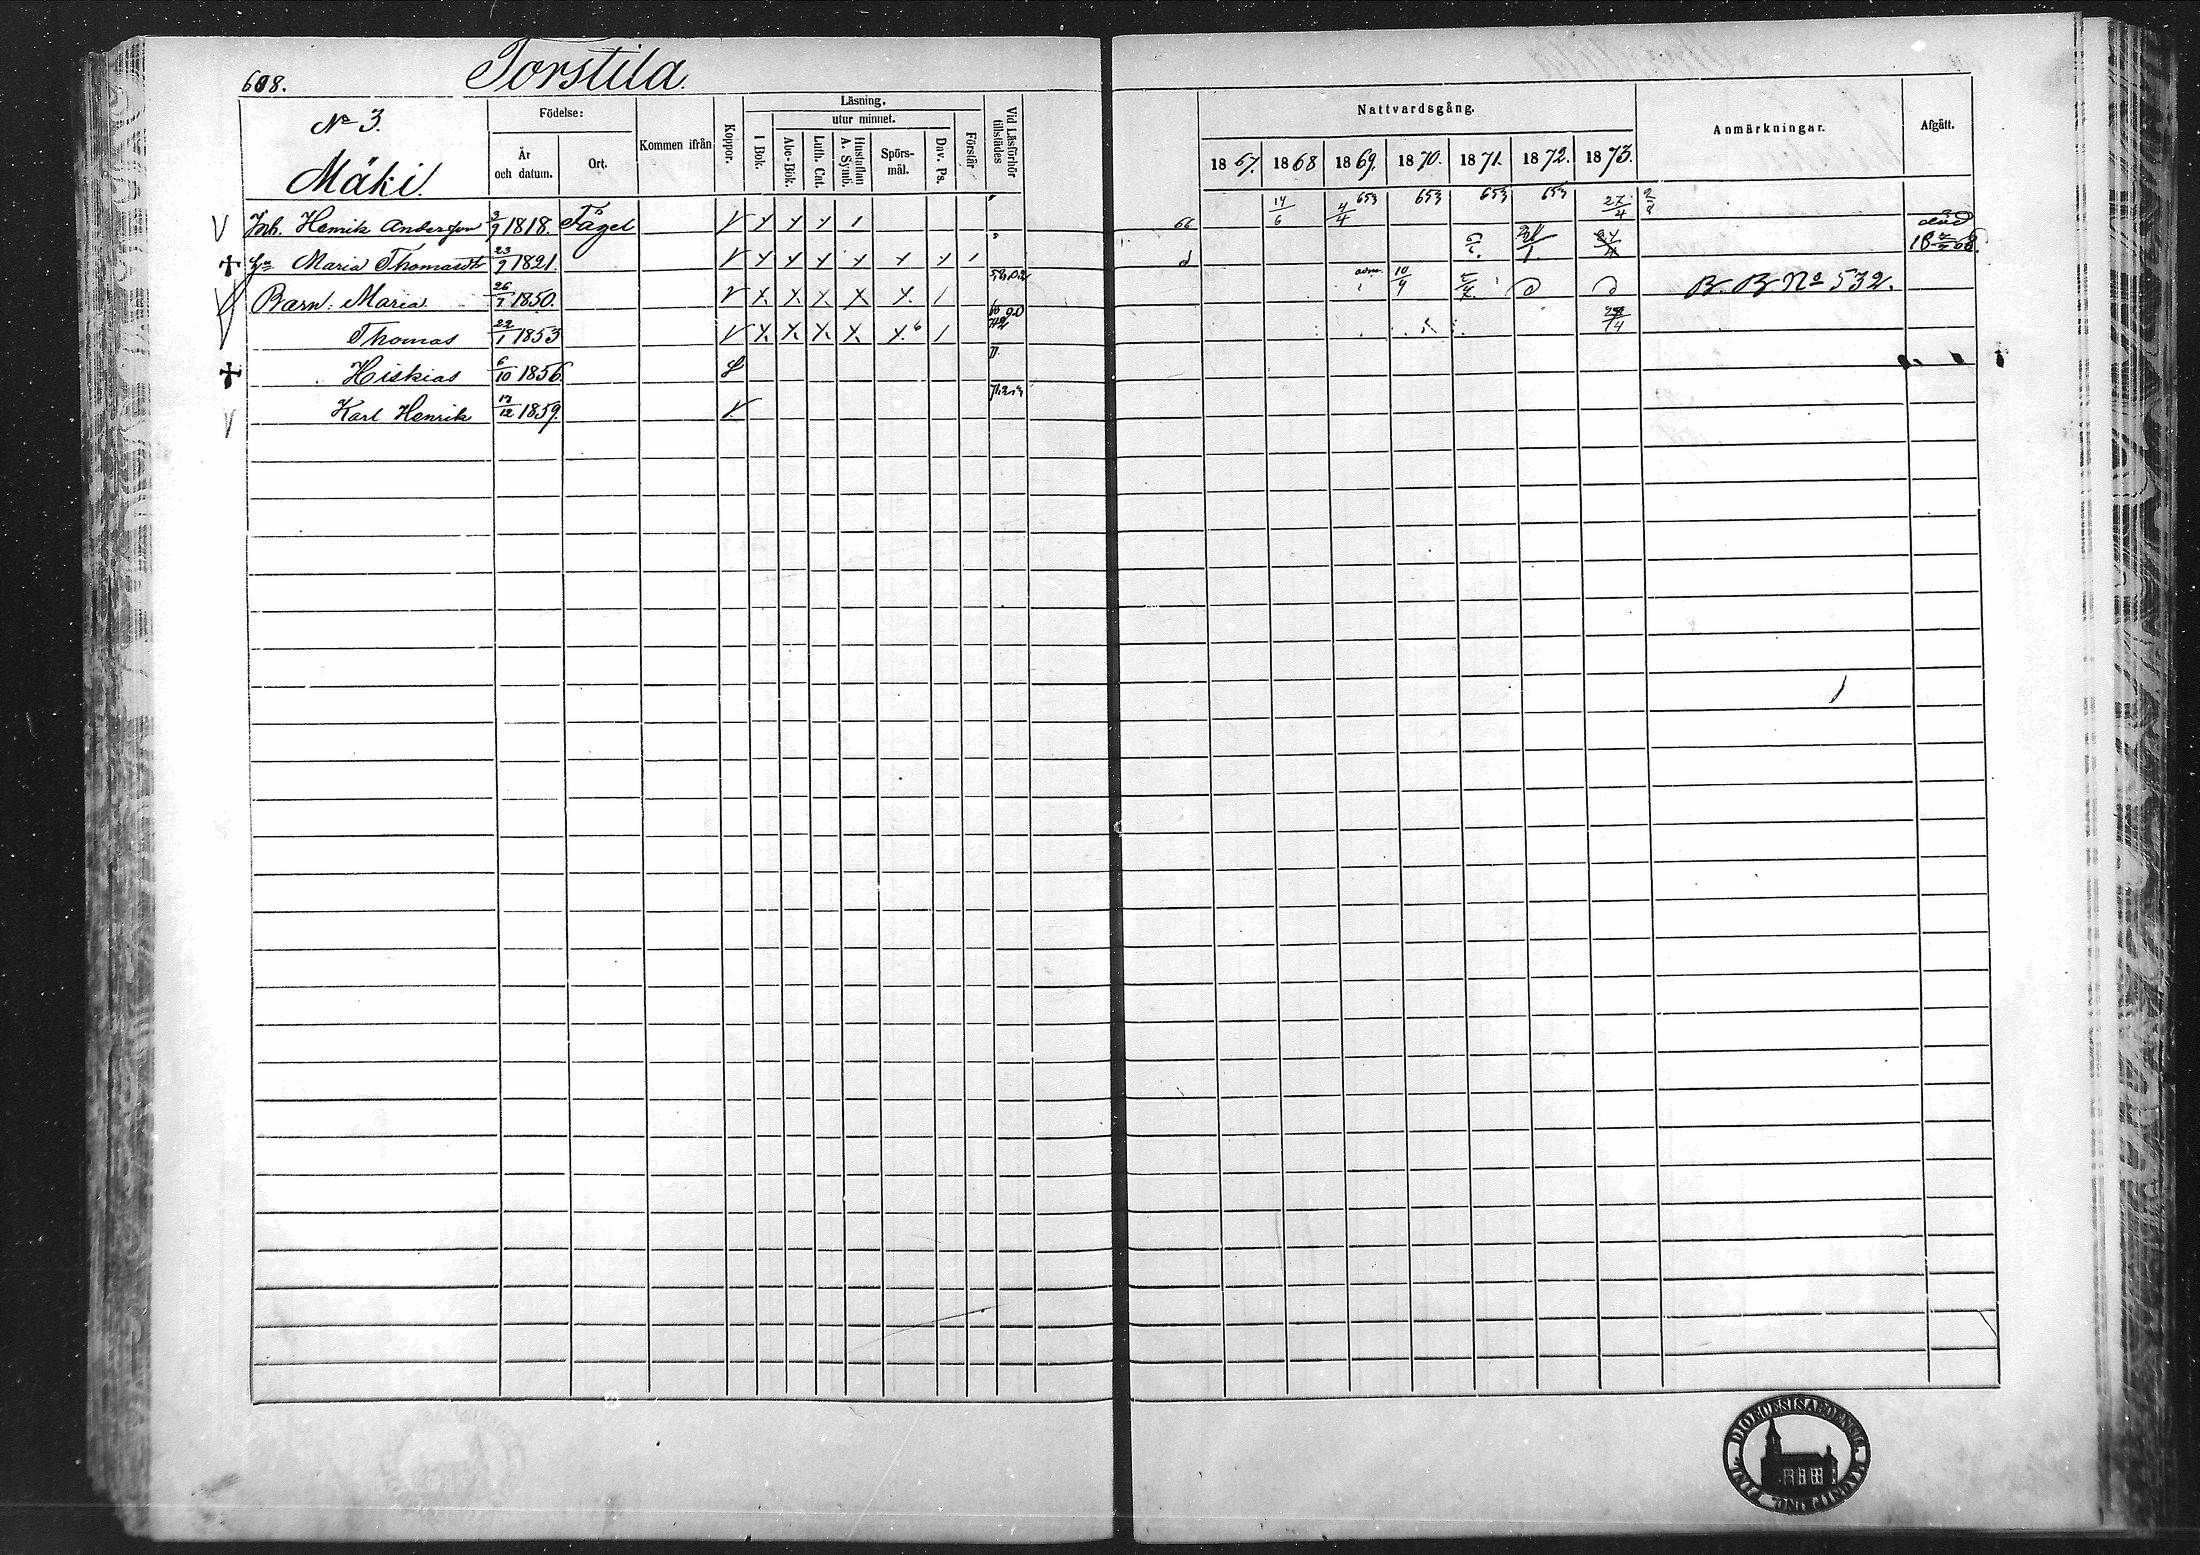 608. Torstila.
No 3.
Mäki.
Födelse:
År och datum.
Ort.
Kommen ifrån
Koppor.
Läsning.
I Bok.
utur minnet.
Abc-Bok.
Luth. Cat.
Hustaflan A. Symb.
Spörsmål.
Dav. Ps.
Förstår
Vid Läsförhör tillstädes
Nattvardsgång.
1867. 1868 1869. 1870. 1871. 1872. 1873.
Anmärkningar.
Afgått.
Inh. Henrik Andersson 3/9 1818. Tågel V x x x 1 66 14/6 4/4 653 653 653 653 27/4
Maria Thomasdr 23/9 1821. V x x x x x x 1 d död
Barn: Maria 26/7 1850. V X X X X X. 1 10/4 B. B. No 532.
Thomas 22/1 1853 V X X X X X. 6 1
Hiskias 6/10 1856.
Karl Henrik 17/12 1859. V